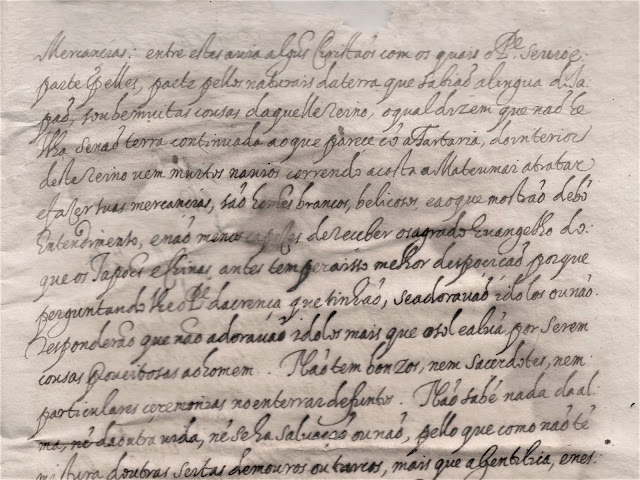 Mercancias: entre estes auia algũs Cristaõs com os quais o Pe. se
parte pelles, parte pellos naturais da terra que sabiaõ a lingua de Ja
paõ, soube muitas cousas daquelle Reino, o qual dizem que naõ he
Ilha senaõ terra continuada ao que parece cõ a Tartaria, do interior
deste Reino vem muitos nauios correndo a costa a Mateumai a tratar
e fazer suas mercancias, saõ homẽs brancos, belicosos, e ao que mostraõ de bõ
Entendimento, e naõ menos capazes de receber o sagrado Euangelho do
que os Japoẽs e Chinas, antes tem pera isso melhor desposicaõ porque
perguntando lhe o Pe. da crenca que tinhaõ, se adorauaõ idolos ou naõ.
responderaõ que naõ adorauaõ idolos mais que o sol e a lũa por serem
cousas proueitosas ao homem. Naõ tem bonzos, nem sacerdotes, nem
particulares ceremonias no enterrar defuntos. Naõ sabẽ nada da al
ma, nẽ da outra uida, nẽ se ha saluacaõ ou naõ, pello que como naõ tẽ
mistura doutras seitas de mouros ou turcos, mais que a Gentilica, e nes